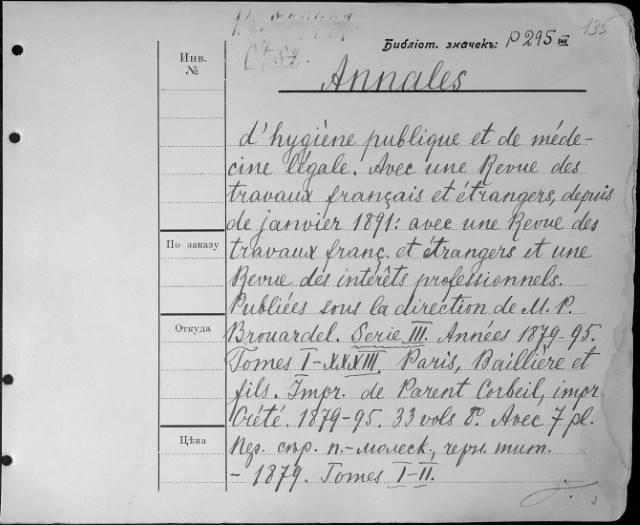 135
Библіот. значекъ: P 295 III
Инв.
№
Annales
d'hygiène publique et de méde-
cine légale. Avec une Revue des
travaux français et étrangers, depuis
de janvier 1891: avec une Revue des
По заказу
travaux franç. et étrangers et une
Revue des intérêts professionnels.
Publiées sous la direction de M. P.
Откуда
Brouardel. Serie III. Années 1879-95.
Tomes I-XXXIII. Paris, Baillière et
fils. Impr. de Parent Corbeil, impr.
Crété. 1879-95. 33 vols 8°. Avec 7 pl.
Цѣна
Пер. сѣр. п.-молеск., черн. тит.
- 1879. Tomes I-II.